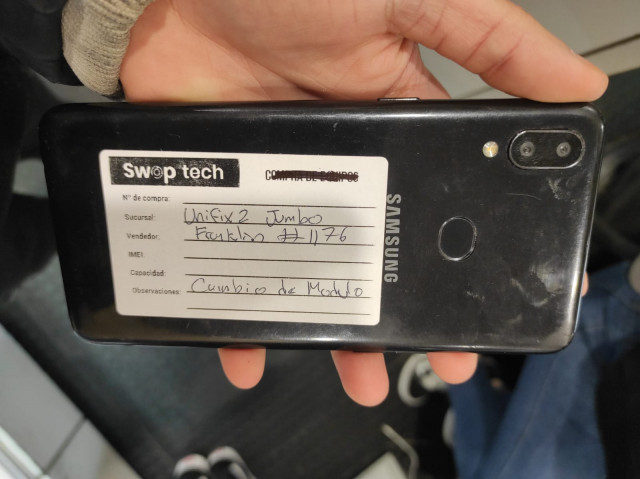 Swop tech
COMPRA DE EQUIPOS
N° de compra:
Sucursal: Unifix2 Jumbo
Vendedor: Franklin #1176
IMEI:
Capacidad:
Observaciones: Cambio de Modulo
SAMSUNG